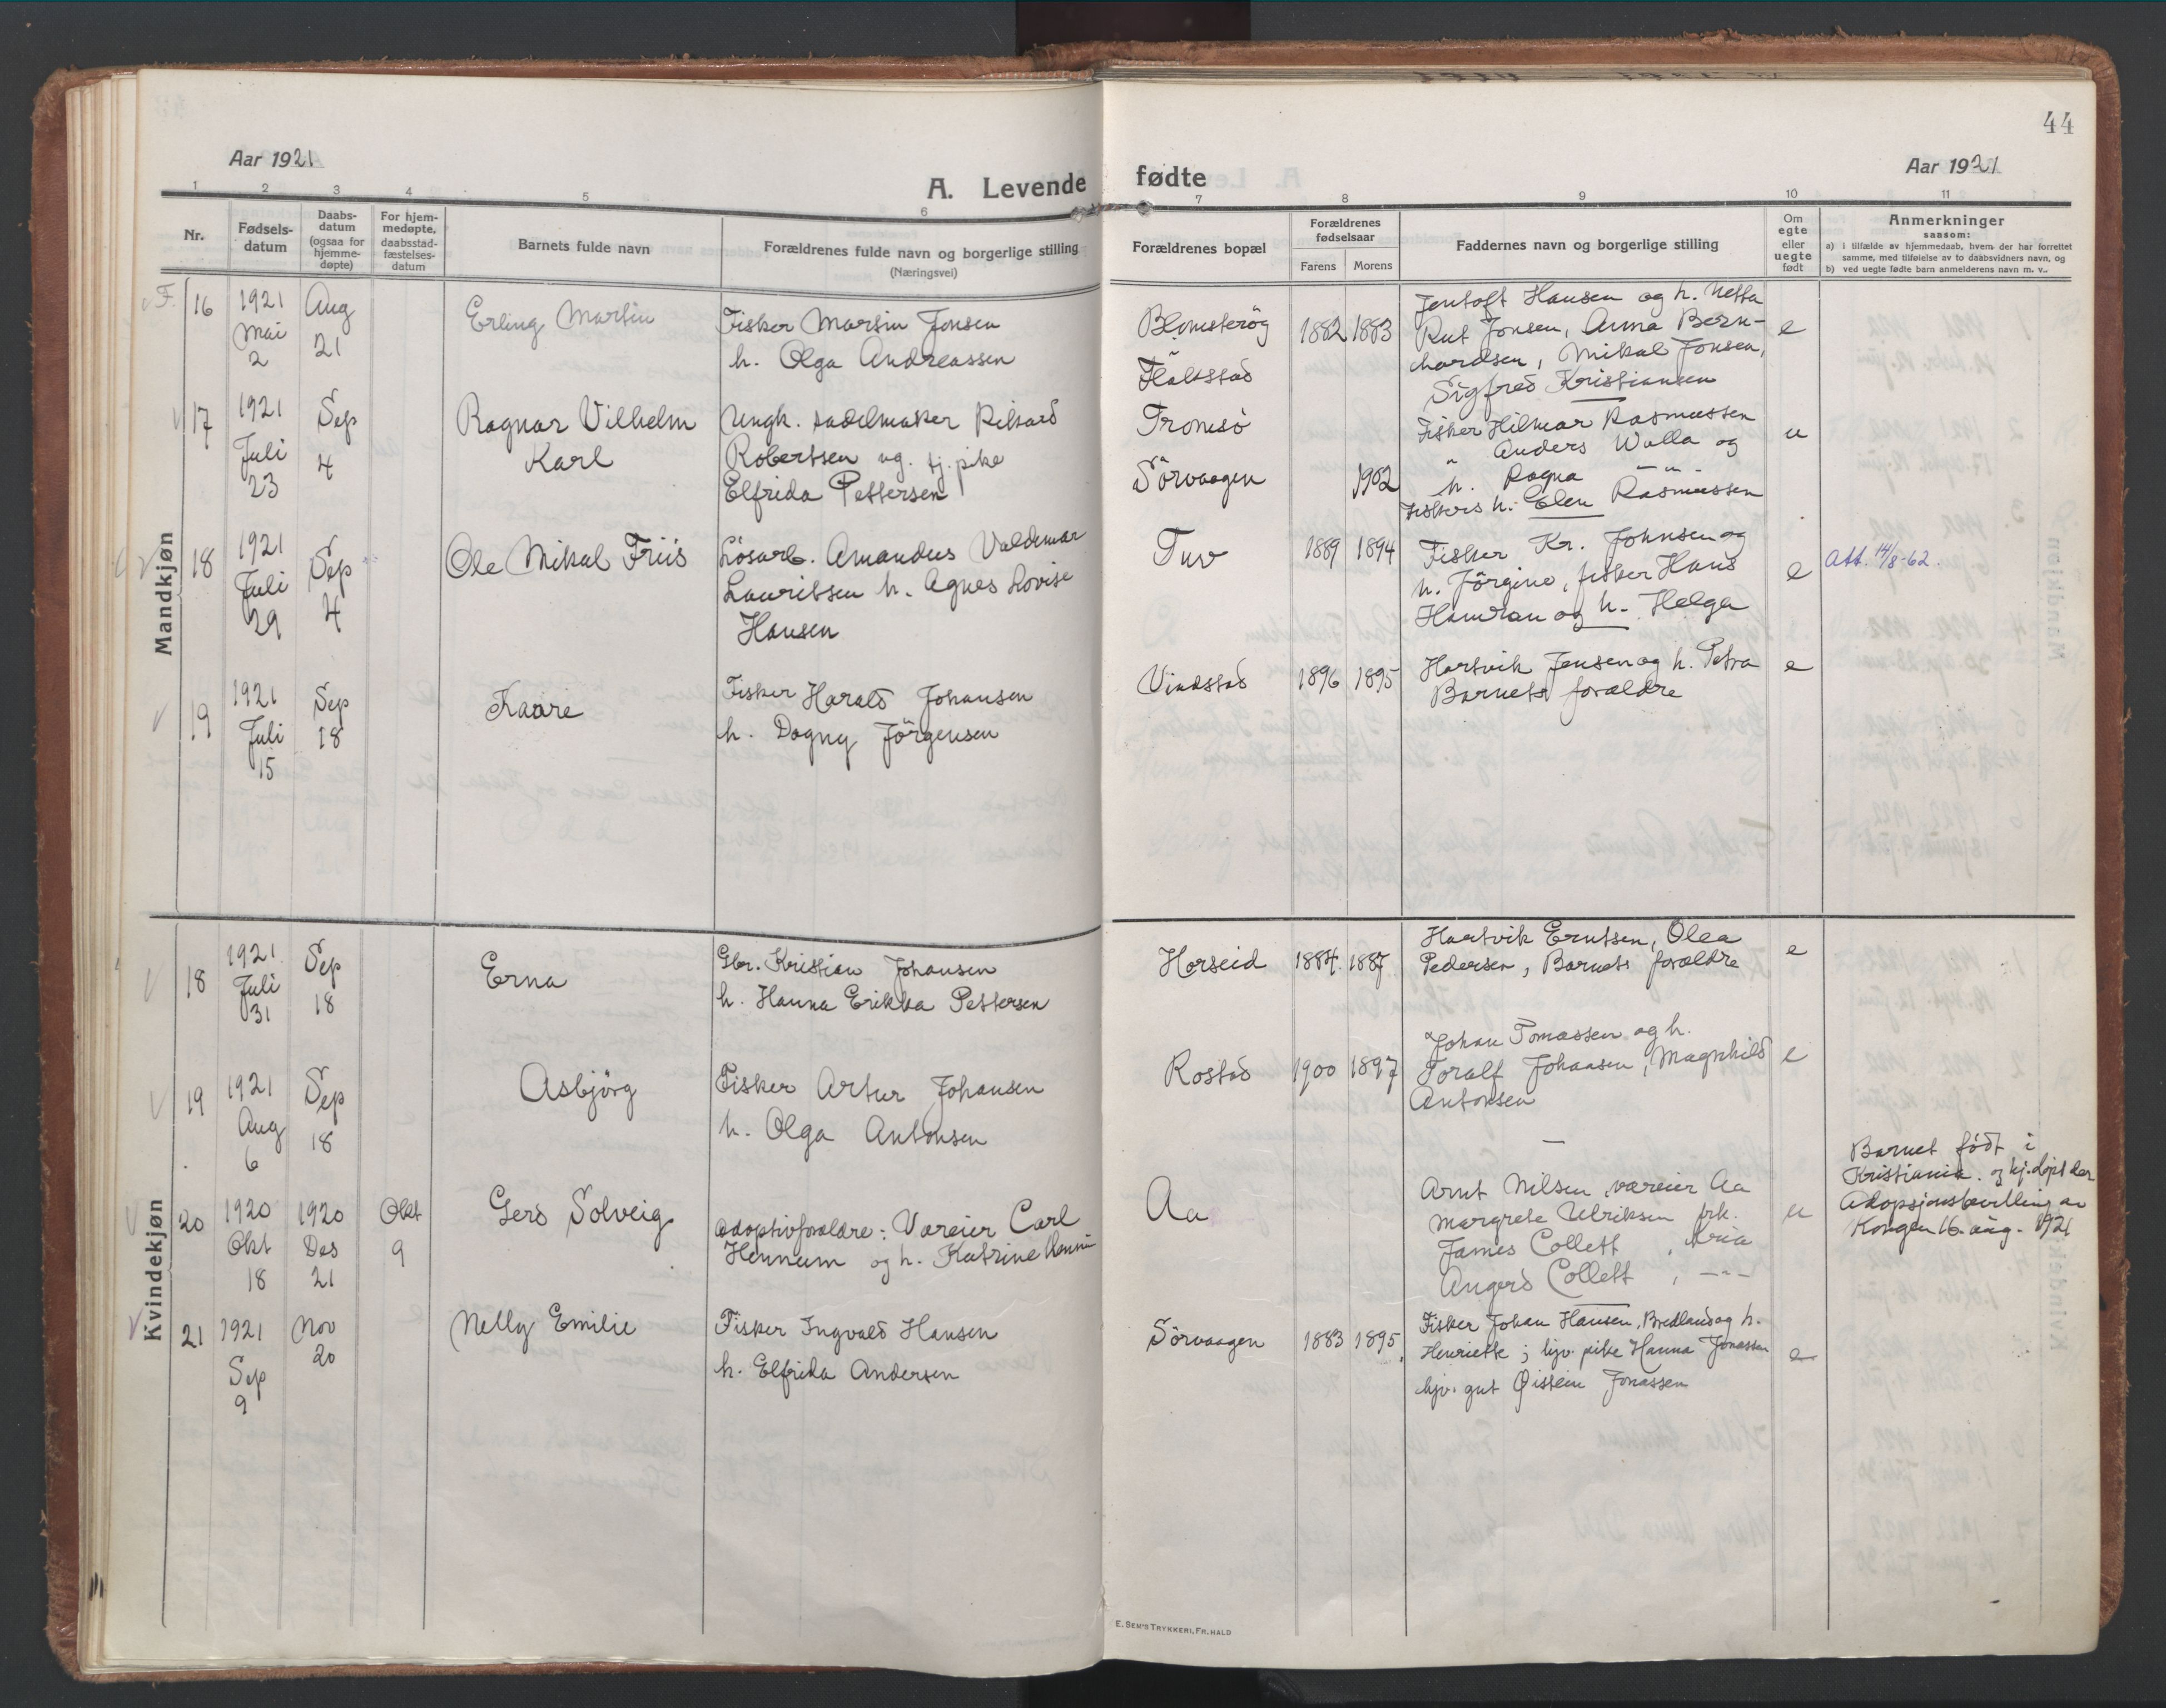 44
Aar 1921
A. Levende fødte
Aar 1921
1 2 3 4 5 6 7 8 9 10 11
Nr.
Fødsels-
datum
Daabs-
datum
(ogsaa for
hjemme-
døpte)
For hjem-
medøpte,
daabsstad-
fæstelses-
datum
Barnets fulde navn
Forældrenes fulde navn og borgerlige stilling
(Næringsvei)
Forældrenes bopæl
Forældrenes
fødselsaar
Farens Morens
Faddernes navn og borgerlige stilling
Om
egte
eller
uegte
født
Anmerkninger
saasom:
a) i tilfælde av hjemmedaab, hvem der har forrettet
samme, med tilføielse av to daabsvidners navn, og
b) ved uegte fødte barn anmelderens navn m. v.
Mandkjøn
F. 16
1921
Mai
2
Aug
21
Erling Martin
Fisker Martin Jensen
h. Olga Andreassen
Blomsterög
Flakstad
1882 1883
Jentoft Hansen og h. Netta
Rut Jonsen, Anna Bern-
hardsen, Mikal Jonsen,
Sigfred Kristiansen
e
17
1921
Juli
23
Sep
4
Ragnar Vilhelm
Karl
Ungk. sadelmaker Rikard
Robertsen ug. tj.pike
Elfrida Pettersen
Tromsö
Sörvaagen
1902
Fisker Hilmar Rasmussen
" Anders Walla og
h. Ragna — " -
Fiskers h. Elen Rasmussen
u
18
1921
Juli
29
Sep
4
Ole Mikal Friis
Lösarb. Amandus Valdemar
Lauritsen h. Agnes Lovise
Hansen
Tuv
1889 1894
Fisker Kr. Johnsen og
h. Jörgine, fisker Hans
Hamran og h. Helga
e
Att. 14/8-62.
19
1921
Juli
15
Sep
18
Kaare
Fisker Harald Johansen
h. Dagny Jörgensen
Vindstad
1896 1895
Hartvik Jensen og h. Petra
Barnets forældre
e
Kvindekjøn
18
1921
Juli
31
Sep
18
Erna
Gbr. Kristian Johansen
h. Hanna Erikka Pettersen
Horseid
1884. 1887
Hartvik Erntsen, Olea
Pedersen, Barnets forældre
e
19
1921
Aug
6
Sep
18
Asbjörg
Fisker Artur Johansen
h. Olga Antonsen
Rostad
1900 1897
Johan Tomassen og h.
Toralf Johansen, Magnhild
Antonsen
e
20
1920
Okt
18
1920
Des
21
Okt
9
Gerd Solveig
Adoptivforældre: Væreier Carl
Hennum og h. Katrine
Aa
Arnt Nilsen, væreier Aa
Margrete Ulriksen frk.
James Collett , Kria
Angerd Collett , - - -
u
Barnet födt i
Kristiania. og hj.döpt der
Adopsjonsbevilling av
Kongen 16 aug. 1921
21
1921
Sep
9
Nov
20
Nelly Emilie
Fisker Ingvald Hansen
h. Elfrida Andersen
Sörvaagen
1883 1895
Fisker Johan Hansen, Bredland og h.
Henriette; hjv. pike Hanna Jonassen
hjv. gut Øistein Jonassen
e
E. SEM'S TRYKKERI, FR.HALD